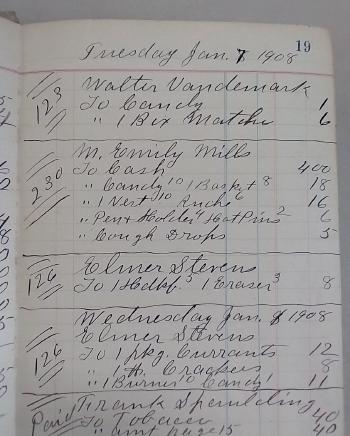 19
Tuesday Jan. 7 1908
Walter Vandemark
123 To Candy 1
" 1 Box Matches 6
M. Emily Mills
230 To Cash 400
" Candy 10 1 Basket 8 18
" 1 Vest 10 Ruche 6 16
" Pen & Holder 4 Hat Pins 2 6
" Cough Drops 5
Elmer Stevens
126 To 1 Hdkf. 5 1 Eraser 3 8
Wednesday Jan. 8 1908
Elmer Stevens
126 To 1 pkg. Currants 12
" 1 lb. Crackers 8
" 1 Burner 10 Candy 1 11
Paid Frank Spaulding
To Tobacco 40
" amt page 15 40